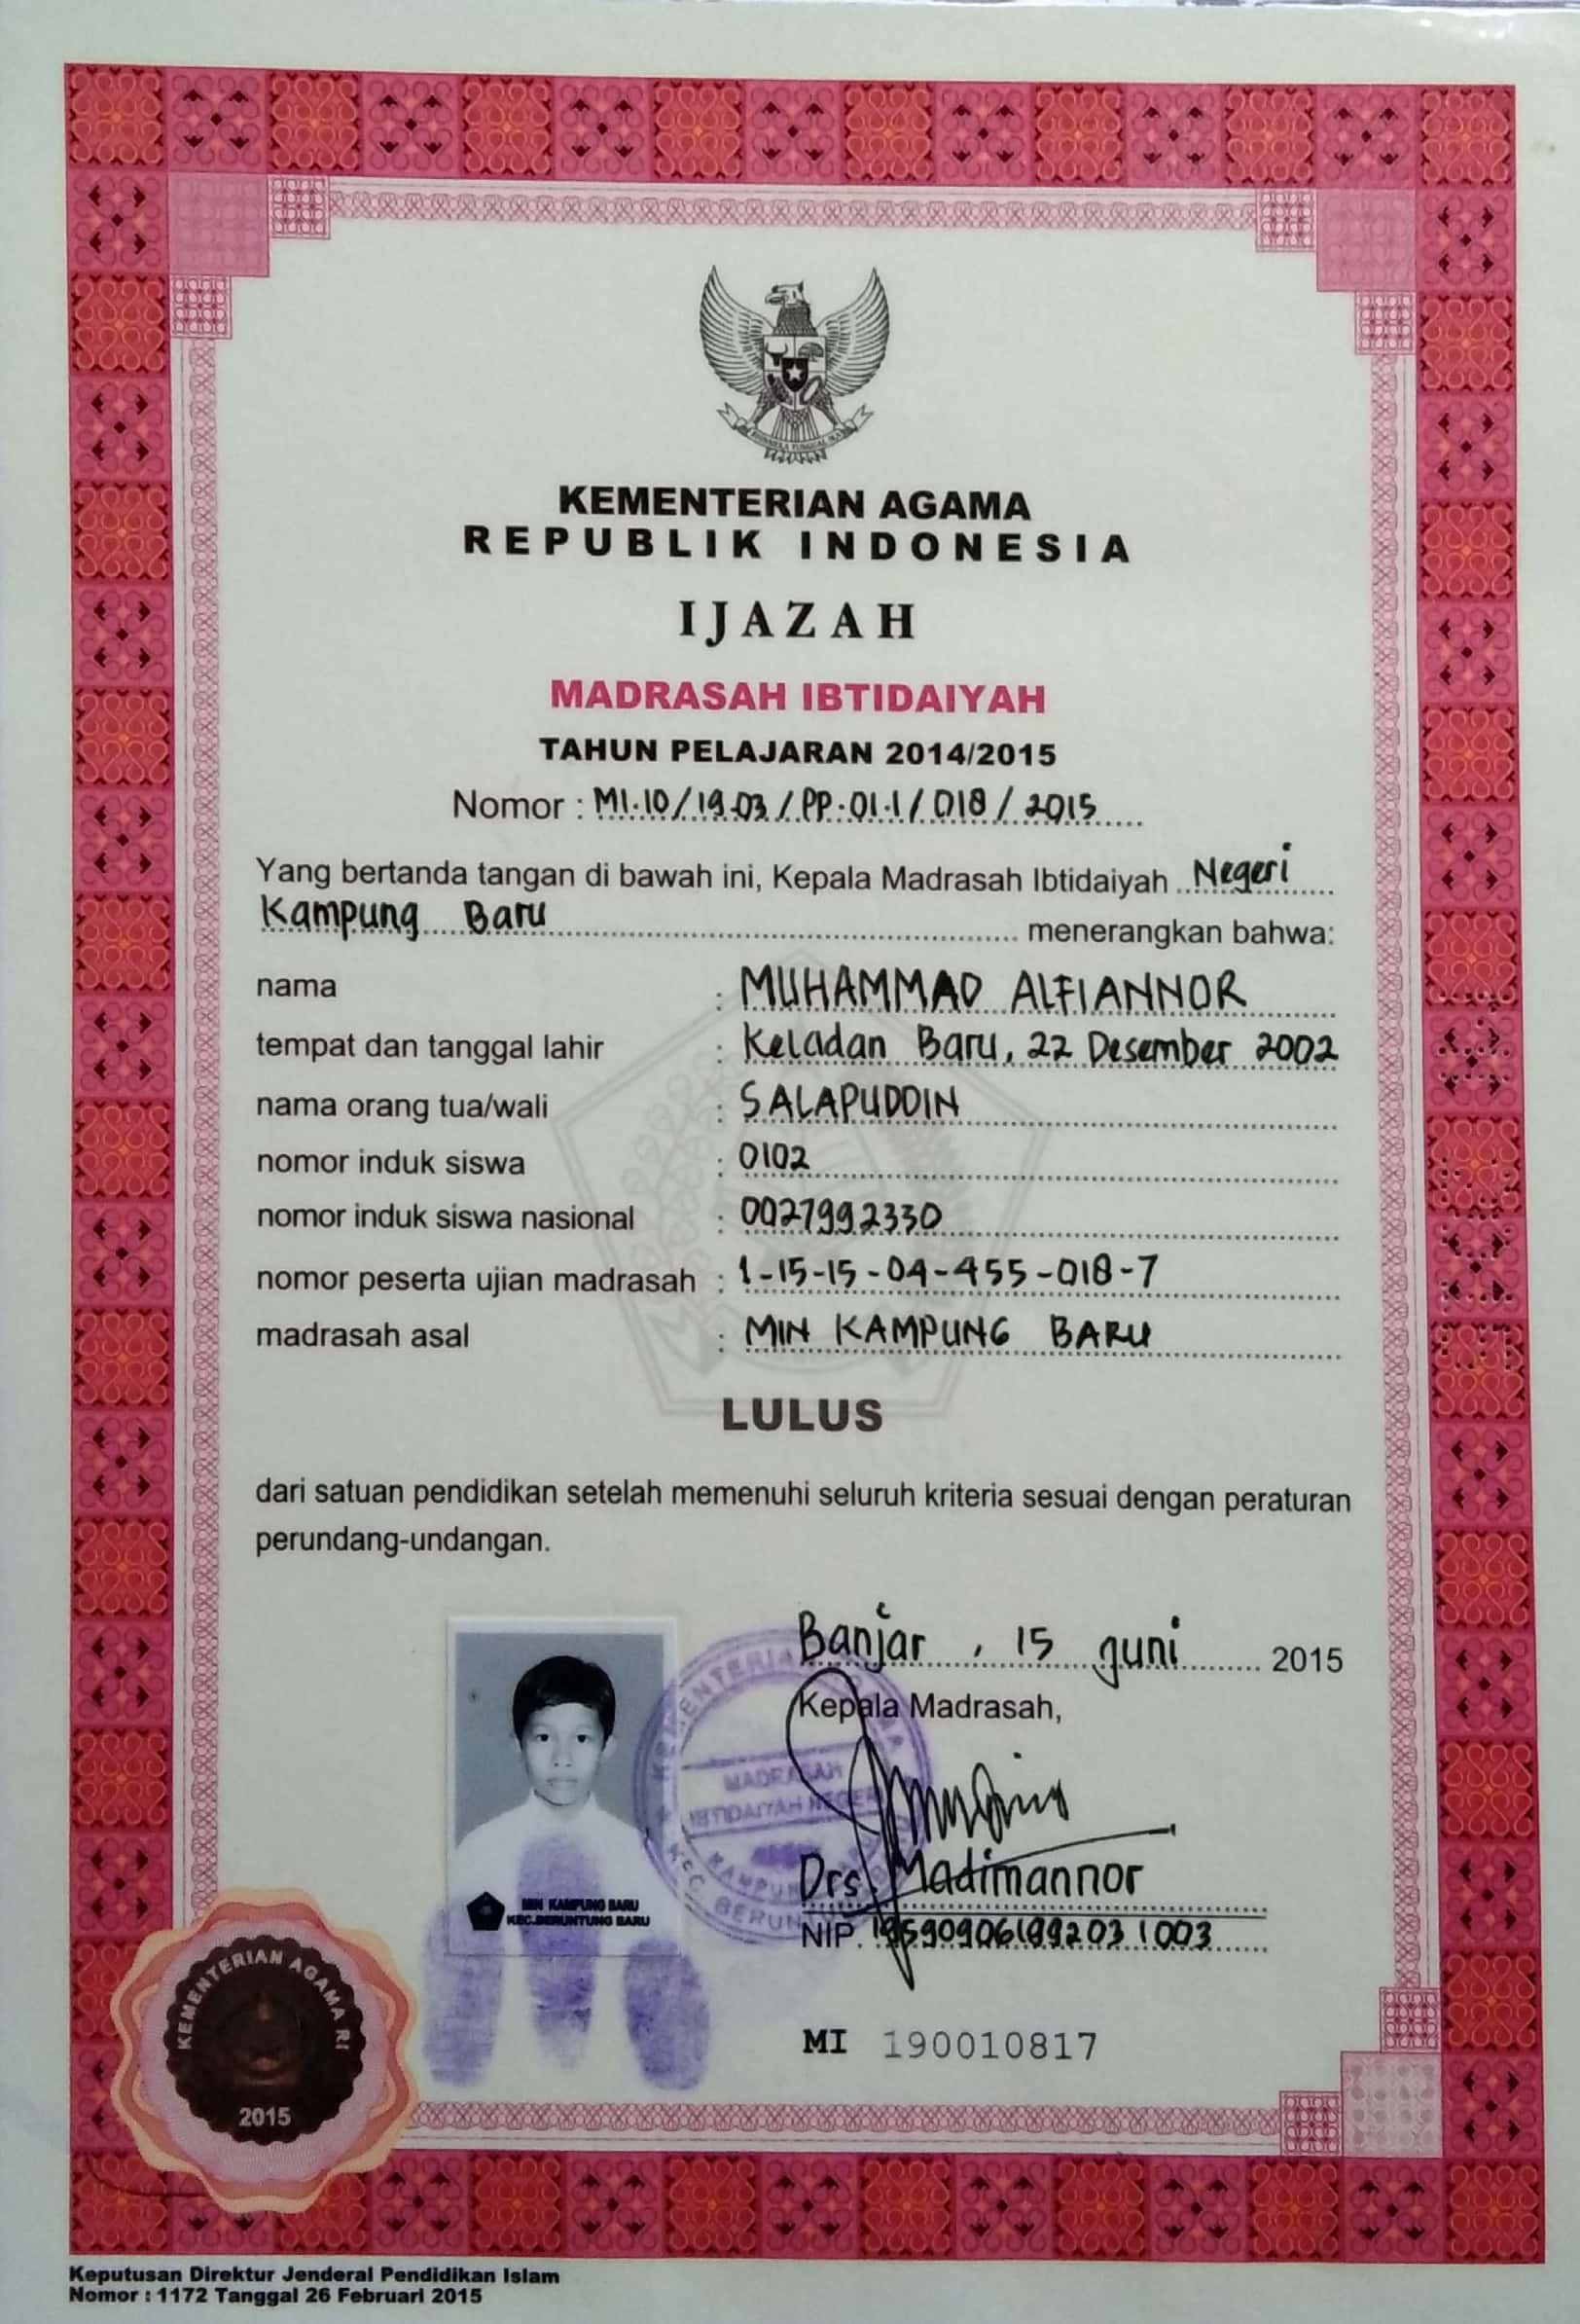 KEMENTERIAN AGAMA
REPUBLIK INDONESIA
IJAZAH
MADRASAH IBTIDAIYAH
TAHUN PELAJARAN 2014/2015
Nomor : MI.10/19.03/PP.01.1/018/2015
Yang bertanda tangan di bawah ini, Kepala Madrasah Ibtidaiyah Negeri
Kampung Baru menerangkan bahwa:
nama : MUHAMMAD ALFIANNOR
tempat dan tanggal lahir : Keladan Baru, 22 Desember 2002
nama orang tua/wali : SALAPUDDIN
nomor induk siswa : 0102
nomor induk siswa nasional : 0027992330
nomor peserta ujian madrasah : 1-15-15-04-455-018-7
madrasah asal : MIN KAMPUNG BARU
LULUS
dari satuan pendidikan setelah memenuhi seluruh kriteria sesuai dengan peraturan
perundang-undangan.
Banjar, 15 Juni 2015
Kepala Madrasah,
KEMENTERIAN AGAMA
MADRASAH
IBTIDAIYAH NEGERI
KAMPUNG
KEC. BERUN
Drs. Madimannor
NIP. 195909061992031003
MIN KAMPUNG BARU
KEC.BERUNTUNG BARU
MI 190010817
KEMENTERIAN AGAMA RI
2015
Keputusan Direktur Jenderal Pendidikan Islam
Nomor : 1172 Tanggal 26 Februari 2015